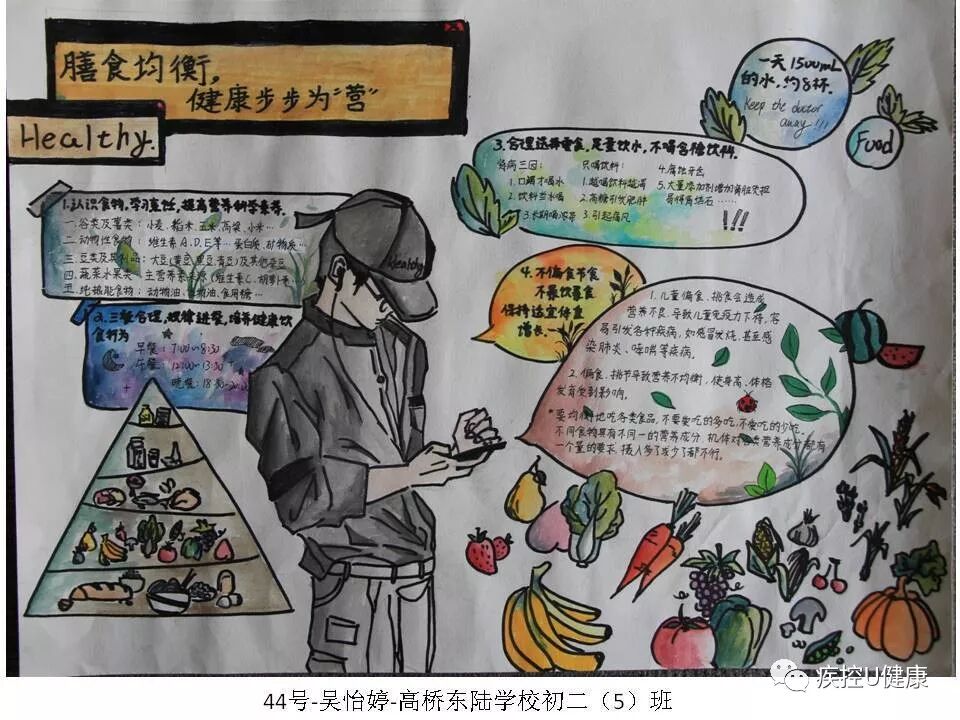 膳食均衡,
健康步步为“营”
Healthy.
一天1500mL
的水,约8杯.
Keep the doctor
away!!!
Food
1.认识食物,学习烹饪,提高营养科学素养.
一.谷类及薯类:小麦、稻米、玉米、高粱、小米…
二.动物性食物:维生素A、D、E等…蛋白质、矿物质…
三.豆类及其制品:大豆(黄豆、黑豆、青豆)及其他杂豆
四.蔬菜水果类:主营养素来源(维生素C、胡萝卜素…)
五.纯热能食物:动物油、植物油、食用糖…
2.三餐合理,规律进餐,培养健康饮
食行为
早餐:7:00~8:30
午餐:12:00~13:30
晚餐:18:30~20:00
3.合理选择零食,足量饮水,不喝含糖饮料.
肾病三因:
1.口渴才喝水
2.饮料当水喝
3.长期喝浓茶
只喝饮料:
1.越喝饮料越渴
2.高糖引发肥胖
3.引起痛风
4.腐蚀牙齿
5.大量添加剂增加肾脏负担
易得肾结石……
!!!
4.不偏食节食
不暴饮暴食
保持适宜体重
增长~
1.儿童偏食、挑食会造成
营养不良.导致儿童免疫力下降,容
易引发各种疾病,如感冒发烧,甚至感
染肺炎、哮喘等疾病.
2.偏食、挑节导致营养不均衡,使身高、体格
发育受到影响.
*要均衡地吃各类食品,不要爱吃的多吃,不爱吃的少吃.
不同食物具有不同一的营养成分.机体对各类营养成分都有
一个量的要求,摄入多了或少了都不行。
Healthy
疾控U健康
44号-吴怡婷-高桥东陆学校初二（5）班